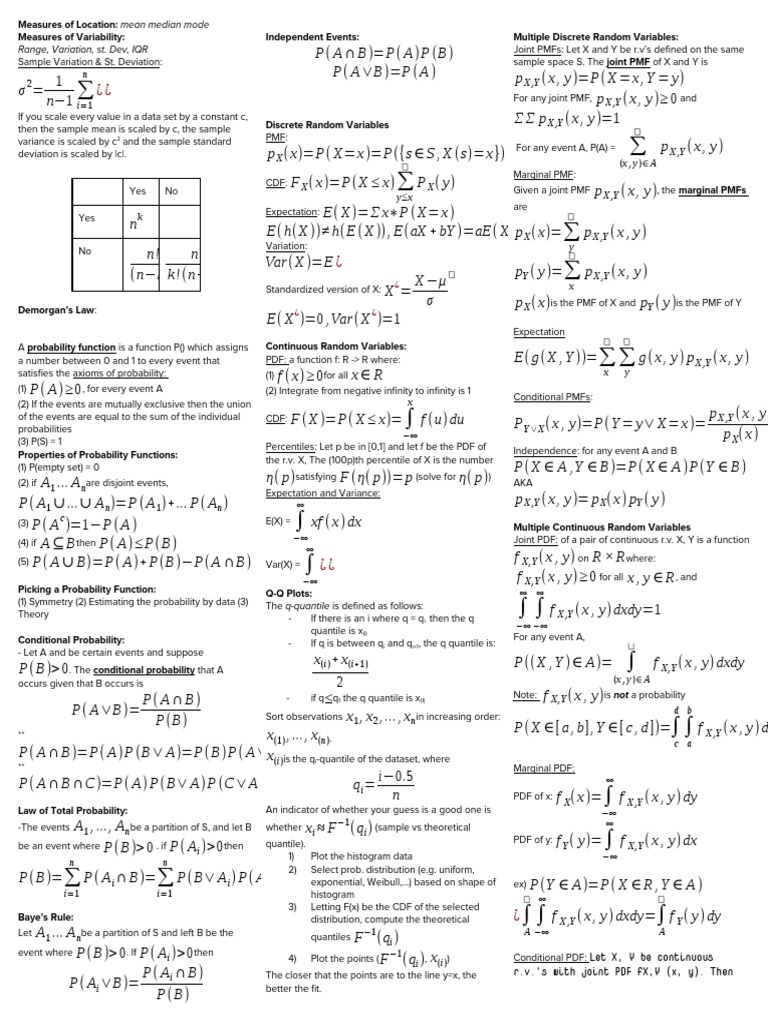 Measures of Location: mean median mode
Measures of Variability:
Range, Variation, st. Dev, IQR
Sample Variation & St. Deviation:
σ²=1/(n−1) ∑_{i=1}^{n} ¿¿
If you scale every value in a data set by a constant c,
then the sample mean is scaled by c, the sample
variance is scaled by c² and the sample standard
deviation is scaled by |c|.
Yes No
Yes n^k
No n!/(n− n/k!(n−
Demorgan's Law:
A probability function is a function P() which assigns
a number between 0 and 1 to every event that
satisfies the axioms of probability:
(1) P(A)≥0, for every event A
(2) If the events are mutually exclusive then the union
of the events are equal to the sum of the individual
probabilities
(3) P(S) = 1
Properties of Probability Functions:
(1) P(empty set) = 0
(2) if A₁...Aₙ are disjoint events,
P(A₁∪...∪Aₙ)=P(A₁)+...P(Aₙ)
(3) P(A^c)=1−P(A)
(4) if A⊆B then P(A)≤P(B)
(5) P(A∪B)=P(A)+P(B)−P(A∩B)
Picking a Probability Function:
(1) Symmetry (2) Estimating the probability by data (3)
Theory
Conditional Probability:
- Let A and be certain events and suppose
P(B)>0. The conditional probability that A
occurs given that B occurs is
P(A∨B)=P(A∩B)/P(B)
**
P(A∩B)=P(A)P(B∨A)=P(B)P(A∨
**
P(A∩B∩C)=P(A)P(B∨A)P(C∨A
Law of Total Probability:
-The events A₁,...,Aₙ be a partition of S, and let B
be an event where P(B)>0. if P(Aᵢ)>0 then
P(B)=∑_{i=1}^{n} P(Aᵢ∩B)=∑_{i=1}^{n} P(B∨Aᵢ)P(A
Baye's Rule:
Let A₁...Aₙ be a partition of S and left B be the
event where P(B)>0. If P(Aᵢ)>0 then
P(Aᵢ∨B)=P(Aᵢ∩B)/P(B)
Independent Events:
P(A∩B)=P(A)P(B)
P(A∨B)=P(A)
Discrete Random Variables
PMF:
p_X(x)=P(X=x)=P({s∈S,X(s)=x})
CDF: F_X(x)=P(X≤x)∑_{y≤x}^{□} P_X(y)
Expectation: E(X)=Σx∗P(X=x)
E(h(X))≠h(E(X)),E(aX+bY)=aE(X
Variation:
Var(X)=E¿
Standardized version of X: X^¿=(X−μ)/σ^□
E(X^¿)=0,Var(X^¿)=1
Continuous Random Variables:
PDF: a function f: R -> R where:
(1) f(x)≥0 for all x∈R
(2) Integrate from negative infinity to infinity is 1
CDF: F(X)=P(X≤x)=∫_{−∞}^{x} f(u)du
Percentiles: Let p be in [0,1] and let f be the PDF of
the r.v. X, The (100p)th percentile of X is the number
η(p) satisfying F(η(p))=p (solve for η(p))
Expectation and Variance:
E(X) = ∫_{−∞}^{∞} xf(x)dx
Var(X) = ∫_{−∞}^{∞} ¿¿
Q-Q Plots:
The q-quantile is defined as follows:
- If there is an i where q = qᵢ then the q
quantile is x₍ᵢ₎
- If q is between qᵢ and qᵢ₊₁, the q quantile is:
(x₍ᵢ₎+x₍ᵢ₊₁₎)/2
- if q≤qᵢ the q quantile is x₍₁₎
Sort observations x₁,x₂,...,xₙ in increasing order:
x₍₁₎,...,x₍ₙ₎.
x₍ᵢ₎ is the qᵢ-quantile of the dataset, where
qᵢ=(i−0.5)/n
An indicator of whether your guess is a good one is
whether xᵢ≈F⁻¹(qᵢ) (sample vs theoretical
quantile).
1) Plot the histogram data
2) Select prob. distribution (e.g. uniform,
exponential, Weibull,...) based on shape of
histogram
3) Letting F(x) be the CDF of the selected
distribution, compute the theoretical
quantiles F⁻¹(qᵢ)
4) Plot the points (F⁻¹(qᵢ), x₍ᵢ₎)
The closer that the points are to the line y=x, the
better the fit.
Multiple Discrete Random Variables:
Joint PMFs: Let X and Y be r.v's defined on the same
sample space S. The joint PMF of X and Y is
p_{X,Y}(x,y)=P(X=x,Y=y)
For any joint PMF, p_{X,Y}(x,y)≥0 and
ΣΣp_{X,Y}(x,y)=1
For any event A, P(A) = ∑_{(x,y)∈A}^{□} p_{X,Y}(x,y)
Marginal PMF:
Given a joint PMF p_{X,Y}(x,y), the marginal PMFs
are
p_X(x)=∑_{y}^{□} p_{X,Y}(x,y)
p_Y(y)=∑_{x}^{□} p_{X,Y}(x,y)
p_X(x) is the PMF of X and p_Y(y) is the PMF of Y
Expectation
E(g(X,Y))=∑_{x}^{□}∑_{y}^{□} g(x,y)p_{X,Y}(x,y)
Conditional PMFs:
P_{Y∨X}(x,y)=P(Y=y∨X=x)=p_{X,Y}(x,y/p_X(x)
Independence: for any event A and B
P(X∈A,Y∈B)=P(X∈A)P(Y∈B)
AKA
p_{X,Y}(x,y)=p_X(x)p_Y(y)
Multiple Continuous Random Variables
Joint PDF: of a pair of continuous r.v. X, Y is a function
f_{X,Y}(x,y) on R×R where:
f_{X,Y}(x,y)≥0 for all x,y∈R, and
∫_{−∞}^{∞}∫_{−∞}^{∞} f_{X,Y}(x,y)dxdy=1
For any event A,
P((X,Y)∈A)=∫_{(x,y)∈A}^{□} f_{X,Y}(x,y)dxdy
Note: f_{X,Y}(x,y) is not a probability
P(X∈[a,b],Y∈[c,d])=∫_{c}^{d}∫_{a}^{b} f_{X,Y}(x,y)d
Marginal PDF:
PDF of x: f_X(x)=∫_{−∞}^{∞} f_{X,Y}(x,y)dy
PDF of y: f_Y(y)=∫_{−∞}^{∞} f_{X,Y}(x,y)dx
ex) P(Y∈A)=P(X∈R,Y∈A)
¿∫_{A}∫_{−∞}^{∞} f_{X,Y}(x,y)dxdy=∫_{A} f_Y(y)dy
Conditional PDF: Let X, Y be continuous
r.v.'s with joint PDF fX,Y (x, y). Then